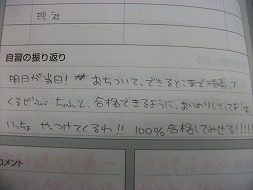 理社
自習の振り返り
明日が当日! おちついて、できるとこまで頑張って
くるぜ!! ちゃんと、合格できるように、おいのりしとってよ!
いっちょ やっつけてくるわ!! 100%合格してみせる!!!!!
コメント